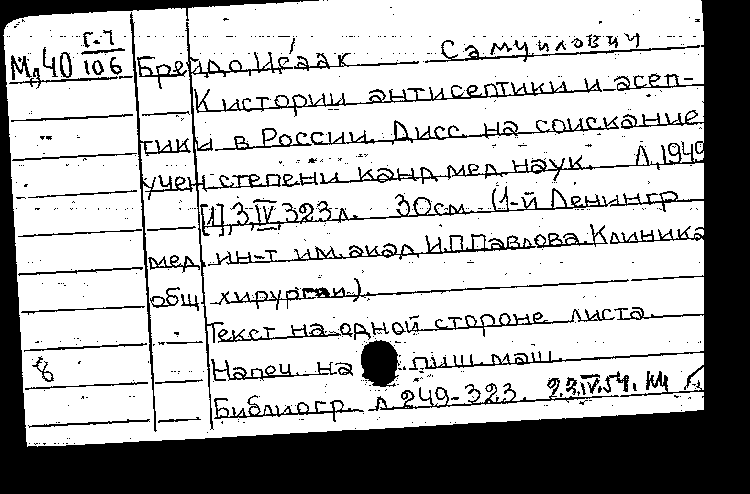 Г.-7
Мд40 106 Брейдо, Исаак Самуилович
К истории антисептики и асеп-
тики в России. Дисс. на соискание
учен степени канд мед. наук. Л, 1949
[1], 3, IV, 323 л. 30см (1-й Ленингр
мед. ин-т им. акад И.П. Павлова. Клиника
общ хирургии).
Текст на одной стороне листа.
8 Напеч. на пиш. маш.
Библиогр. л. 249-323. 23.IV.54.